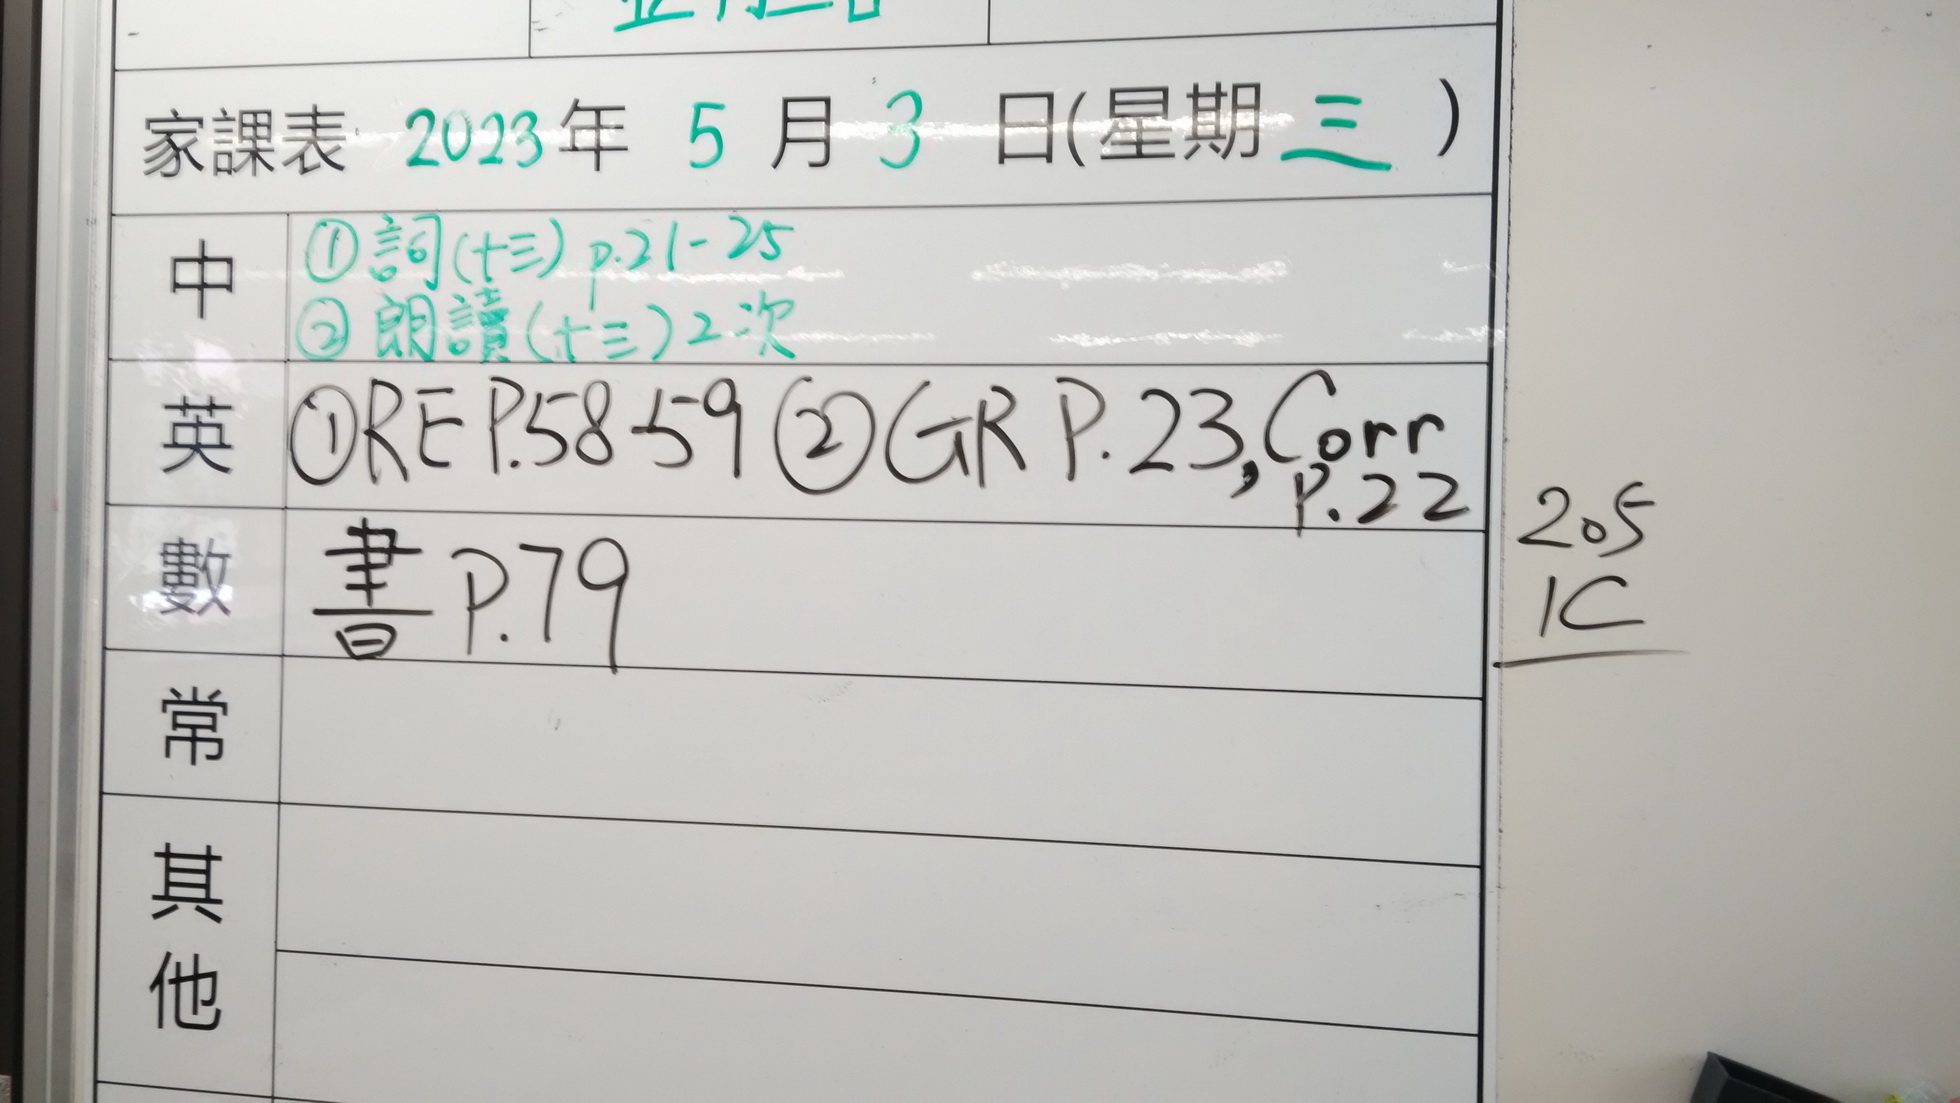 家課表 2023年 5 月 3 日(星期三)
中
① 詞(十三) p.21-25
② 朗讀(十三)2次
英
①RE P.58-59 ②GR P.23,Corr
P.22
數
書 P.79
2.5
1C
常
其
他